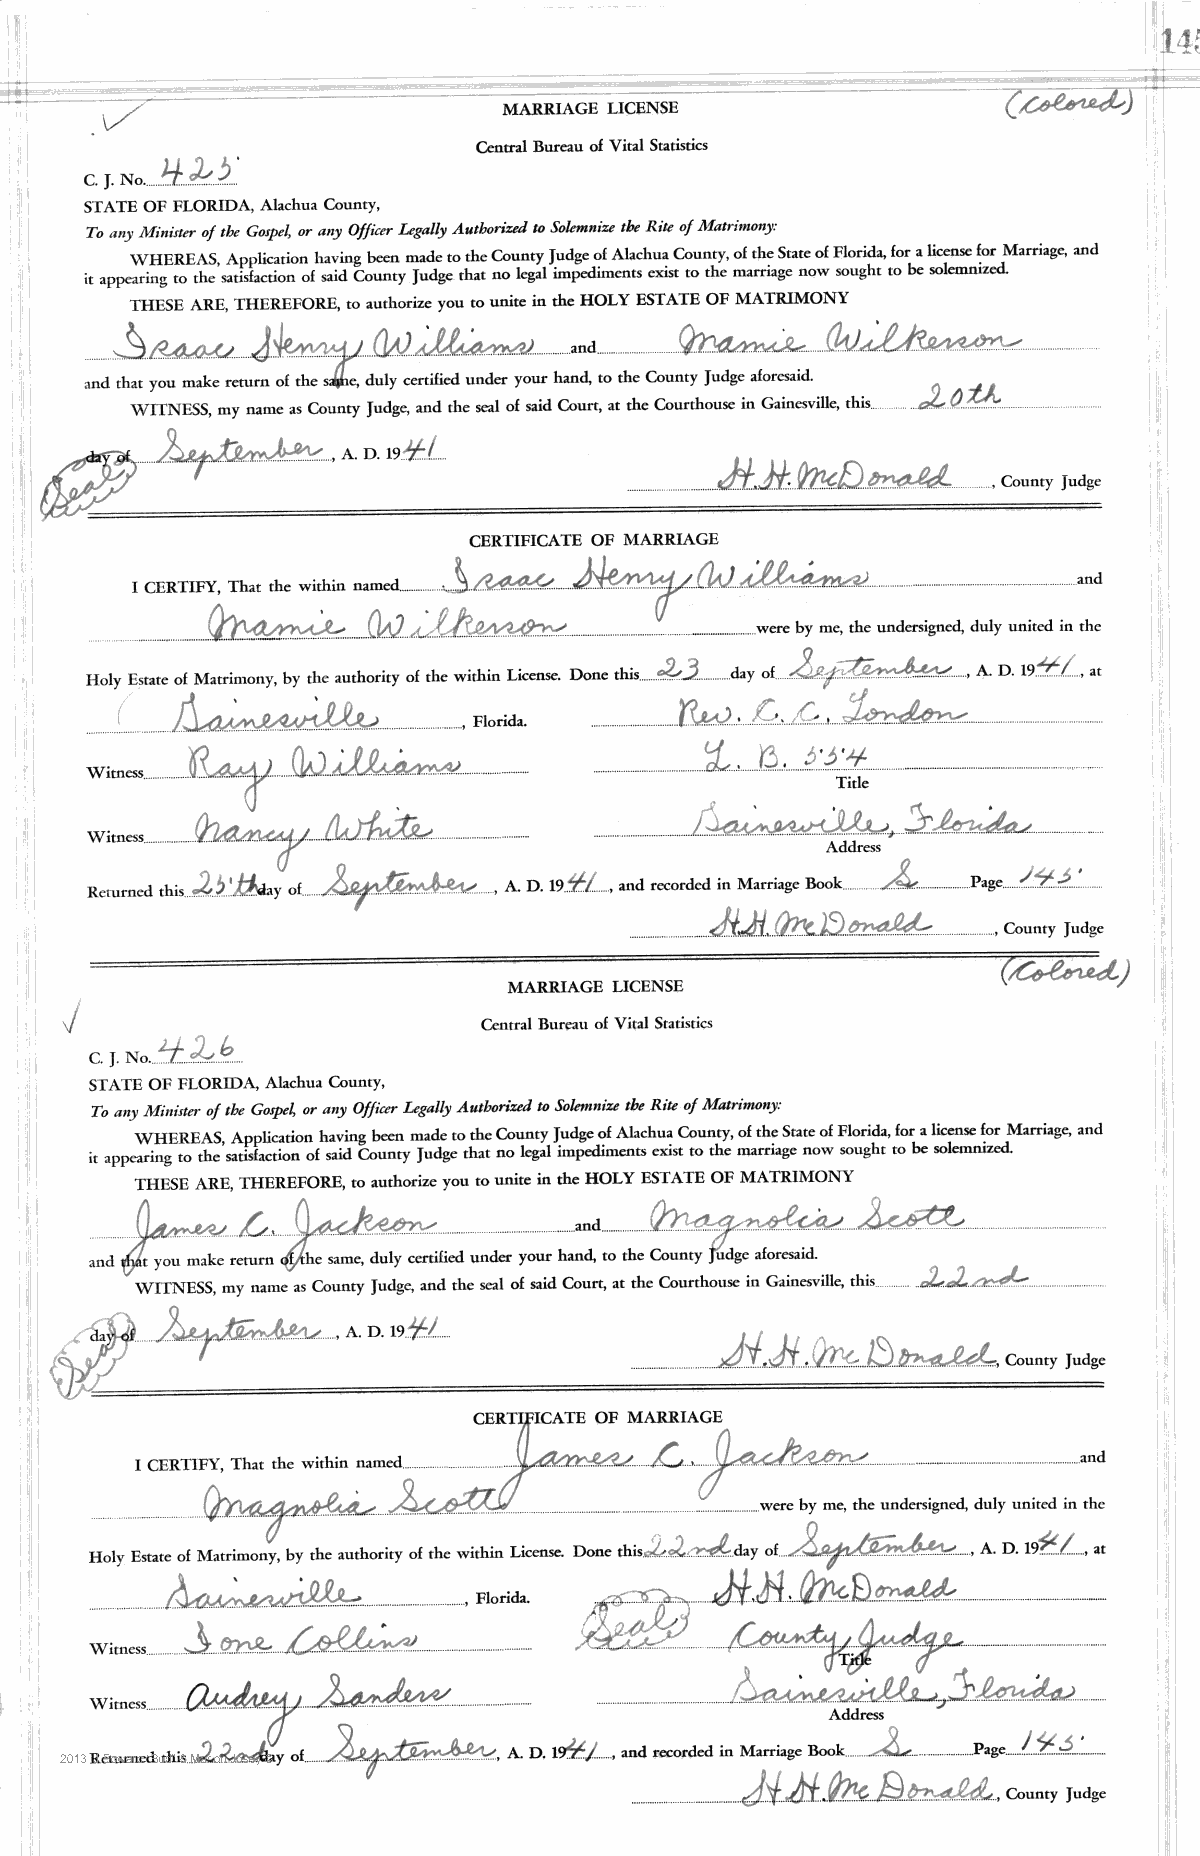 145
MARRIAGE LICENSE
(Colored)
Central Bureau of Vital Statistics
C. J. No. 425
STATE OF FLORIDA, Alachua County,
To any Minister of the Gospel, or any Officer Legally Authorized to Solemnize the Rite of Matrimony:
WHEREAS, Application having been made to the County Judge of Alachua County, of the State of Florida, for a license for Marriage, and
it appearing to the satisfaction of said County Judge that no legal impediments exist to the marriage now sought to be solemnized.
THESE ARE, THEREFORE, to authorize you to unite in the HOLY ESTATE OF MATRIMONY
Isaac Henry Williams and Mamie Wilkerson
and that you make return of the same, duly certified under your hand, to the County Judge aforesaid.
WITNESS, my name as County Judge, and the seal of said Court, at the Courthouse in Gainesville, this 20th
day of September, A. D. 1941
(Seal) H. H. McDonald, County Judge
CERTIFICATE OF MARRIAGE
I CERTIFY, That the within named Isaac Henry Williams and
Mamie Wilkerson were by me, the undersigned, duly united in the
Holy Estate of Matrimony, by the authority of the within License. Done this 23 day of September, A. D. 1941, at
Gainesville, Florida. Rev. C. C. London
Witness Ray Williams L. B. 554
Title
Witness Nancy White Gainesville, Florida
Address
Returned this 25th day of September, A. D. 1941, and recorded in Marriage Book S Page 145
H. H. McDonald, County Judge
(Colored)
MARRIAGE LICENSE
Central Bureau of Vital Statistics
C. J. No. 426
STATE OF FLORIDA, Alachua County,
To any Minister of the Gospel, or any Officer Legally Authorized to Solemnize the Rite of Matrimony:
WHEREAS, Application having been made to the County Judge of Alachua County, of the State of Florida, for a license for Marriage, and
it appearing to the satisfaction of said County Judge that no legal impediments exist to the marriage now sought to be solemnized.
THESE ARE, THEREFORE, to authorize you to unite in the HOLY ESTATE OF MATRIMONY
James C. Jackson and Magnolia Scott
and that you make return of the same, duly certified under your hand, to the County Judge aforesaid.
WITNESS, my name as County Judge, and the seal of said Court, at the Courthouse in Gainesville, this 22nd
day of September, A. D. 1941
(Seal) H. H. McDonald, County Judge
CERTIFICATE OF MARRIAGE
I CERTIFY, That the within named James C. Jackson and
Magnolia Scott were by me, the undersigned, duly united in the
Holy Estate of Matrimony, by the authority of the within License. Done this 22nd day of September, A. D. 1941, at
Gainesville, Florida. H. H. McDonald
Witness Ione Collins (Seal) County Judge
Title
Witness Audrey Sanders Gainesville, Florida
Address
2013
Returned this 22nd day of September, A. D. 1941, and recorded in Marriage Book S Page 145
H. H. McDonald, County Judge